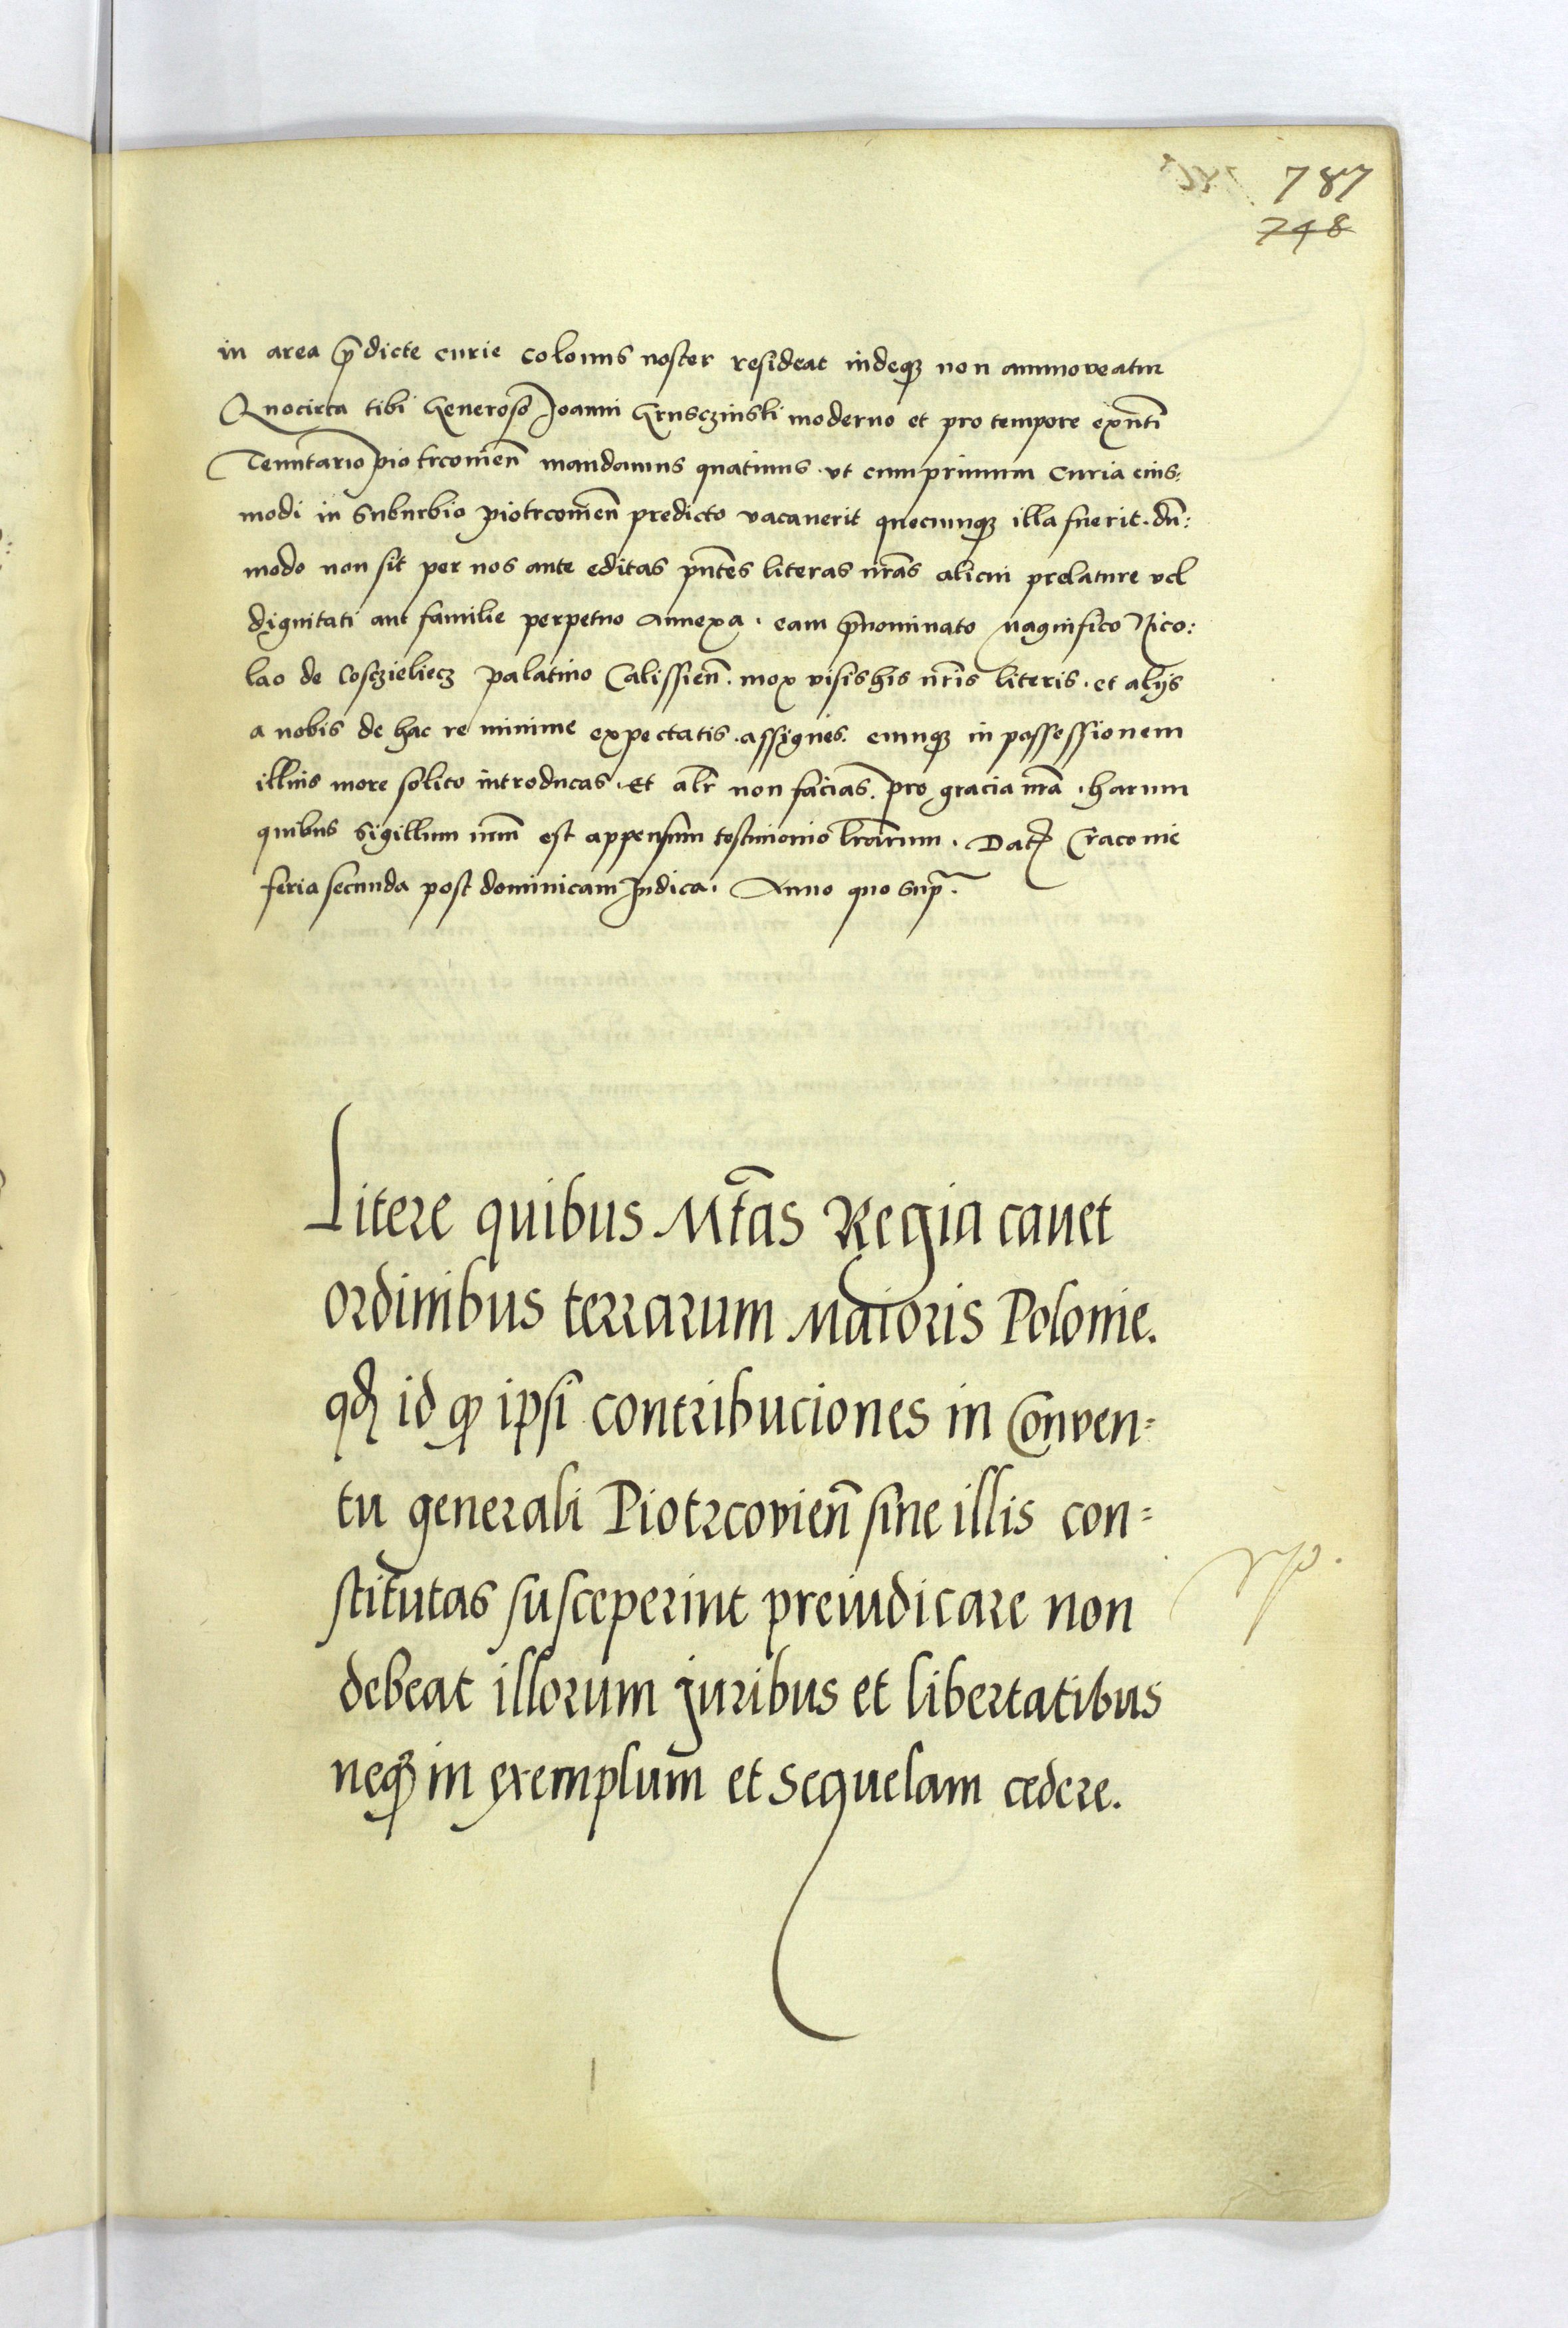 787
748
in area p̄dicte curie colonus noster resideat indeqꝫ non ammoveatur
Quocirca tibi Generoso Joanni Grusczinski moderno et pro tempore exn̄ti
Tenutario piotrcovien̄ mandamus quatinus . ut cum primum curia eius:
modi in suburbio piotrcovien̄ predicto vacaverit quecunqꝫ illa fuerit . dū:
modo non sit per nos ante editas pn̄tes literas nr̄as alicui prelature vel
dignitati aut familie perpetuo annexa . eam p̄nominato Magnifico Nico:
lao de Cosczieliecz palatino Calissien̄ . mox visis his nr̄is literis . et alijs
a nobis de hac re minime expectatis . assignes . eumqꝫ in possessionem
illius more solito introducas . et alr̄ non facias . pro gracia nr̄a . harum
quibus sigillum nr̄m est appensum testimonio lr̄arum . Datꝭ Cracovie
feria secunda post dominicam Judica . Anno quo supr̄ .
Litere quibus Mt̄as Regia cavet
ordinibus terrarum Maioris Polonie.
qđ id ꝙ ipsi contribuciones in Conven=
tu generali Piotrcovien̄ sine illis con=
stitutas susceperint preiudicare non
debeat illorum juribus et libertatibus
neqꝫ in exemplum et sequelam cedere.